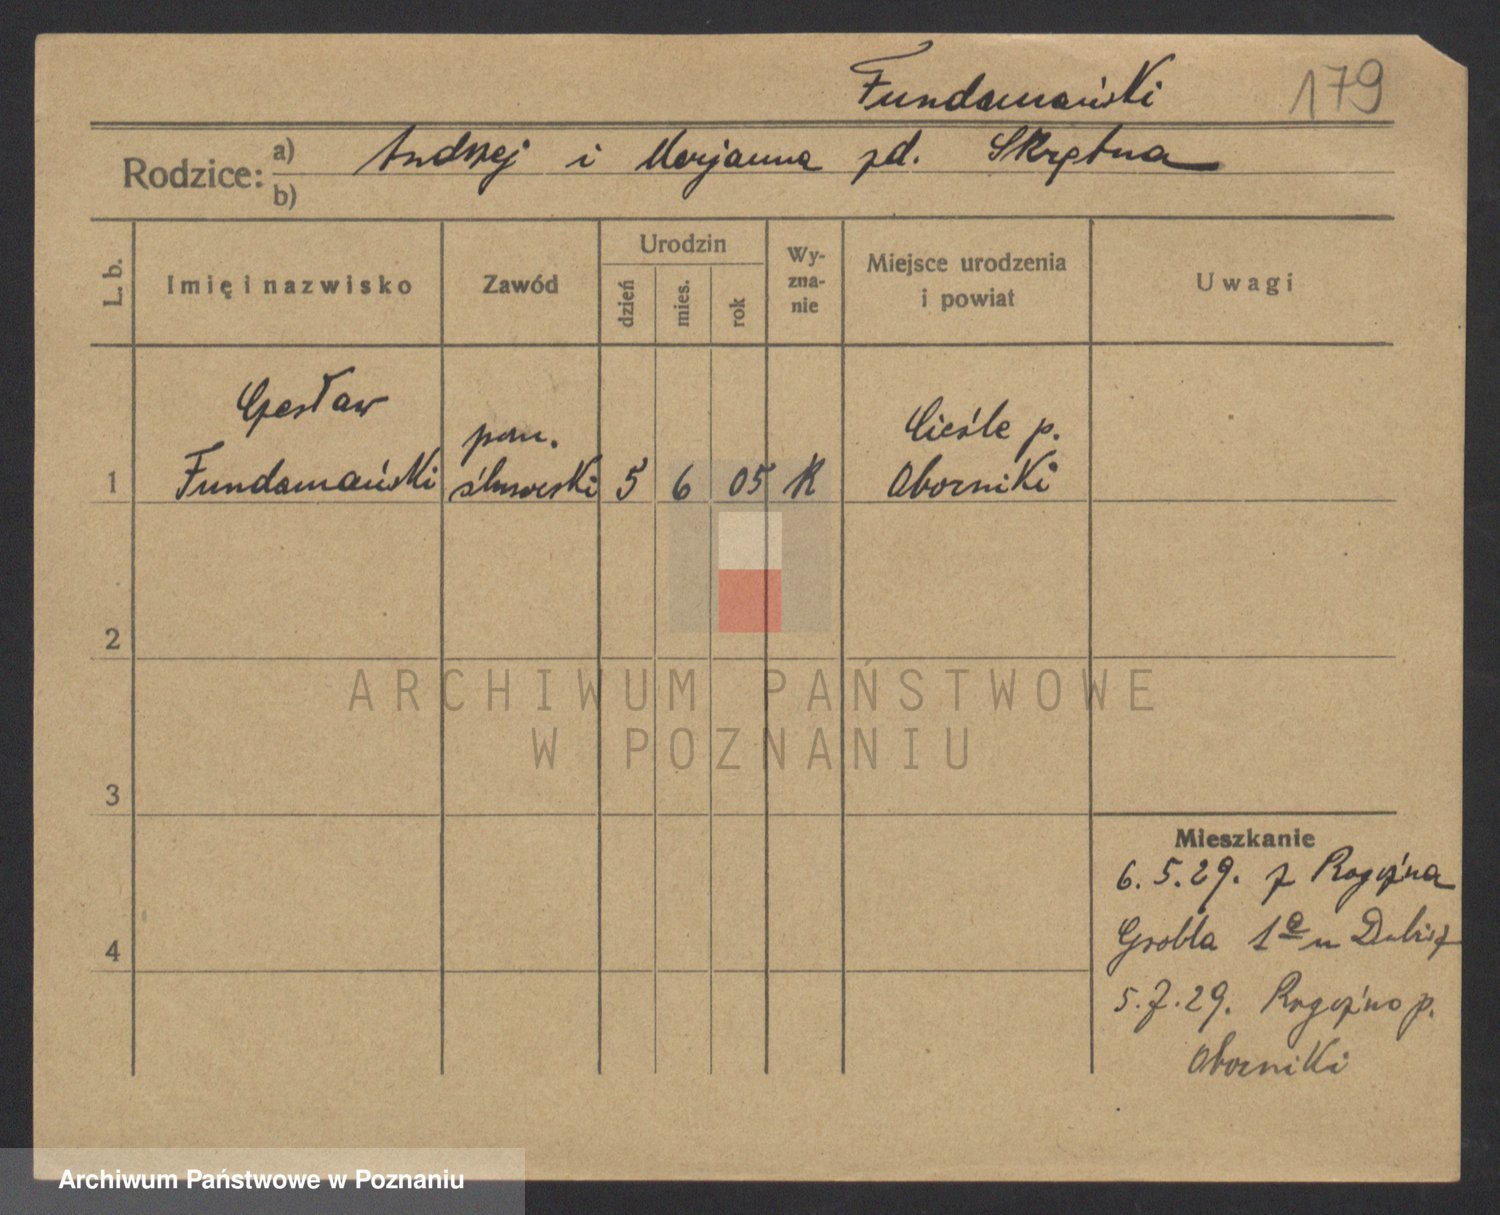 Fundamański 179
Rodzice: a) Andrzej i Marjanna zd. Skrętna
b)
L. b. Imię i nazwisko Zawód Urodzin dzień mies. rok Wyznanie Miejsce urodzenia i powiat Uwagi
Czesław
pom. Cieśle p.
1 Fundamański ślusarski 5 6 05 K Oborniki
2
ARCHIWUM PAŃSTWOWE
W POZNANIU
3
Mieszkanie
6.5.29. z Rogoźna
Grobla 1a u Dubisz
4
5.7.29. Rogoźno p.
Oborniki
Archiwum Państwowe w Poznaniu